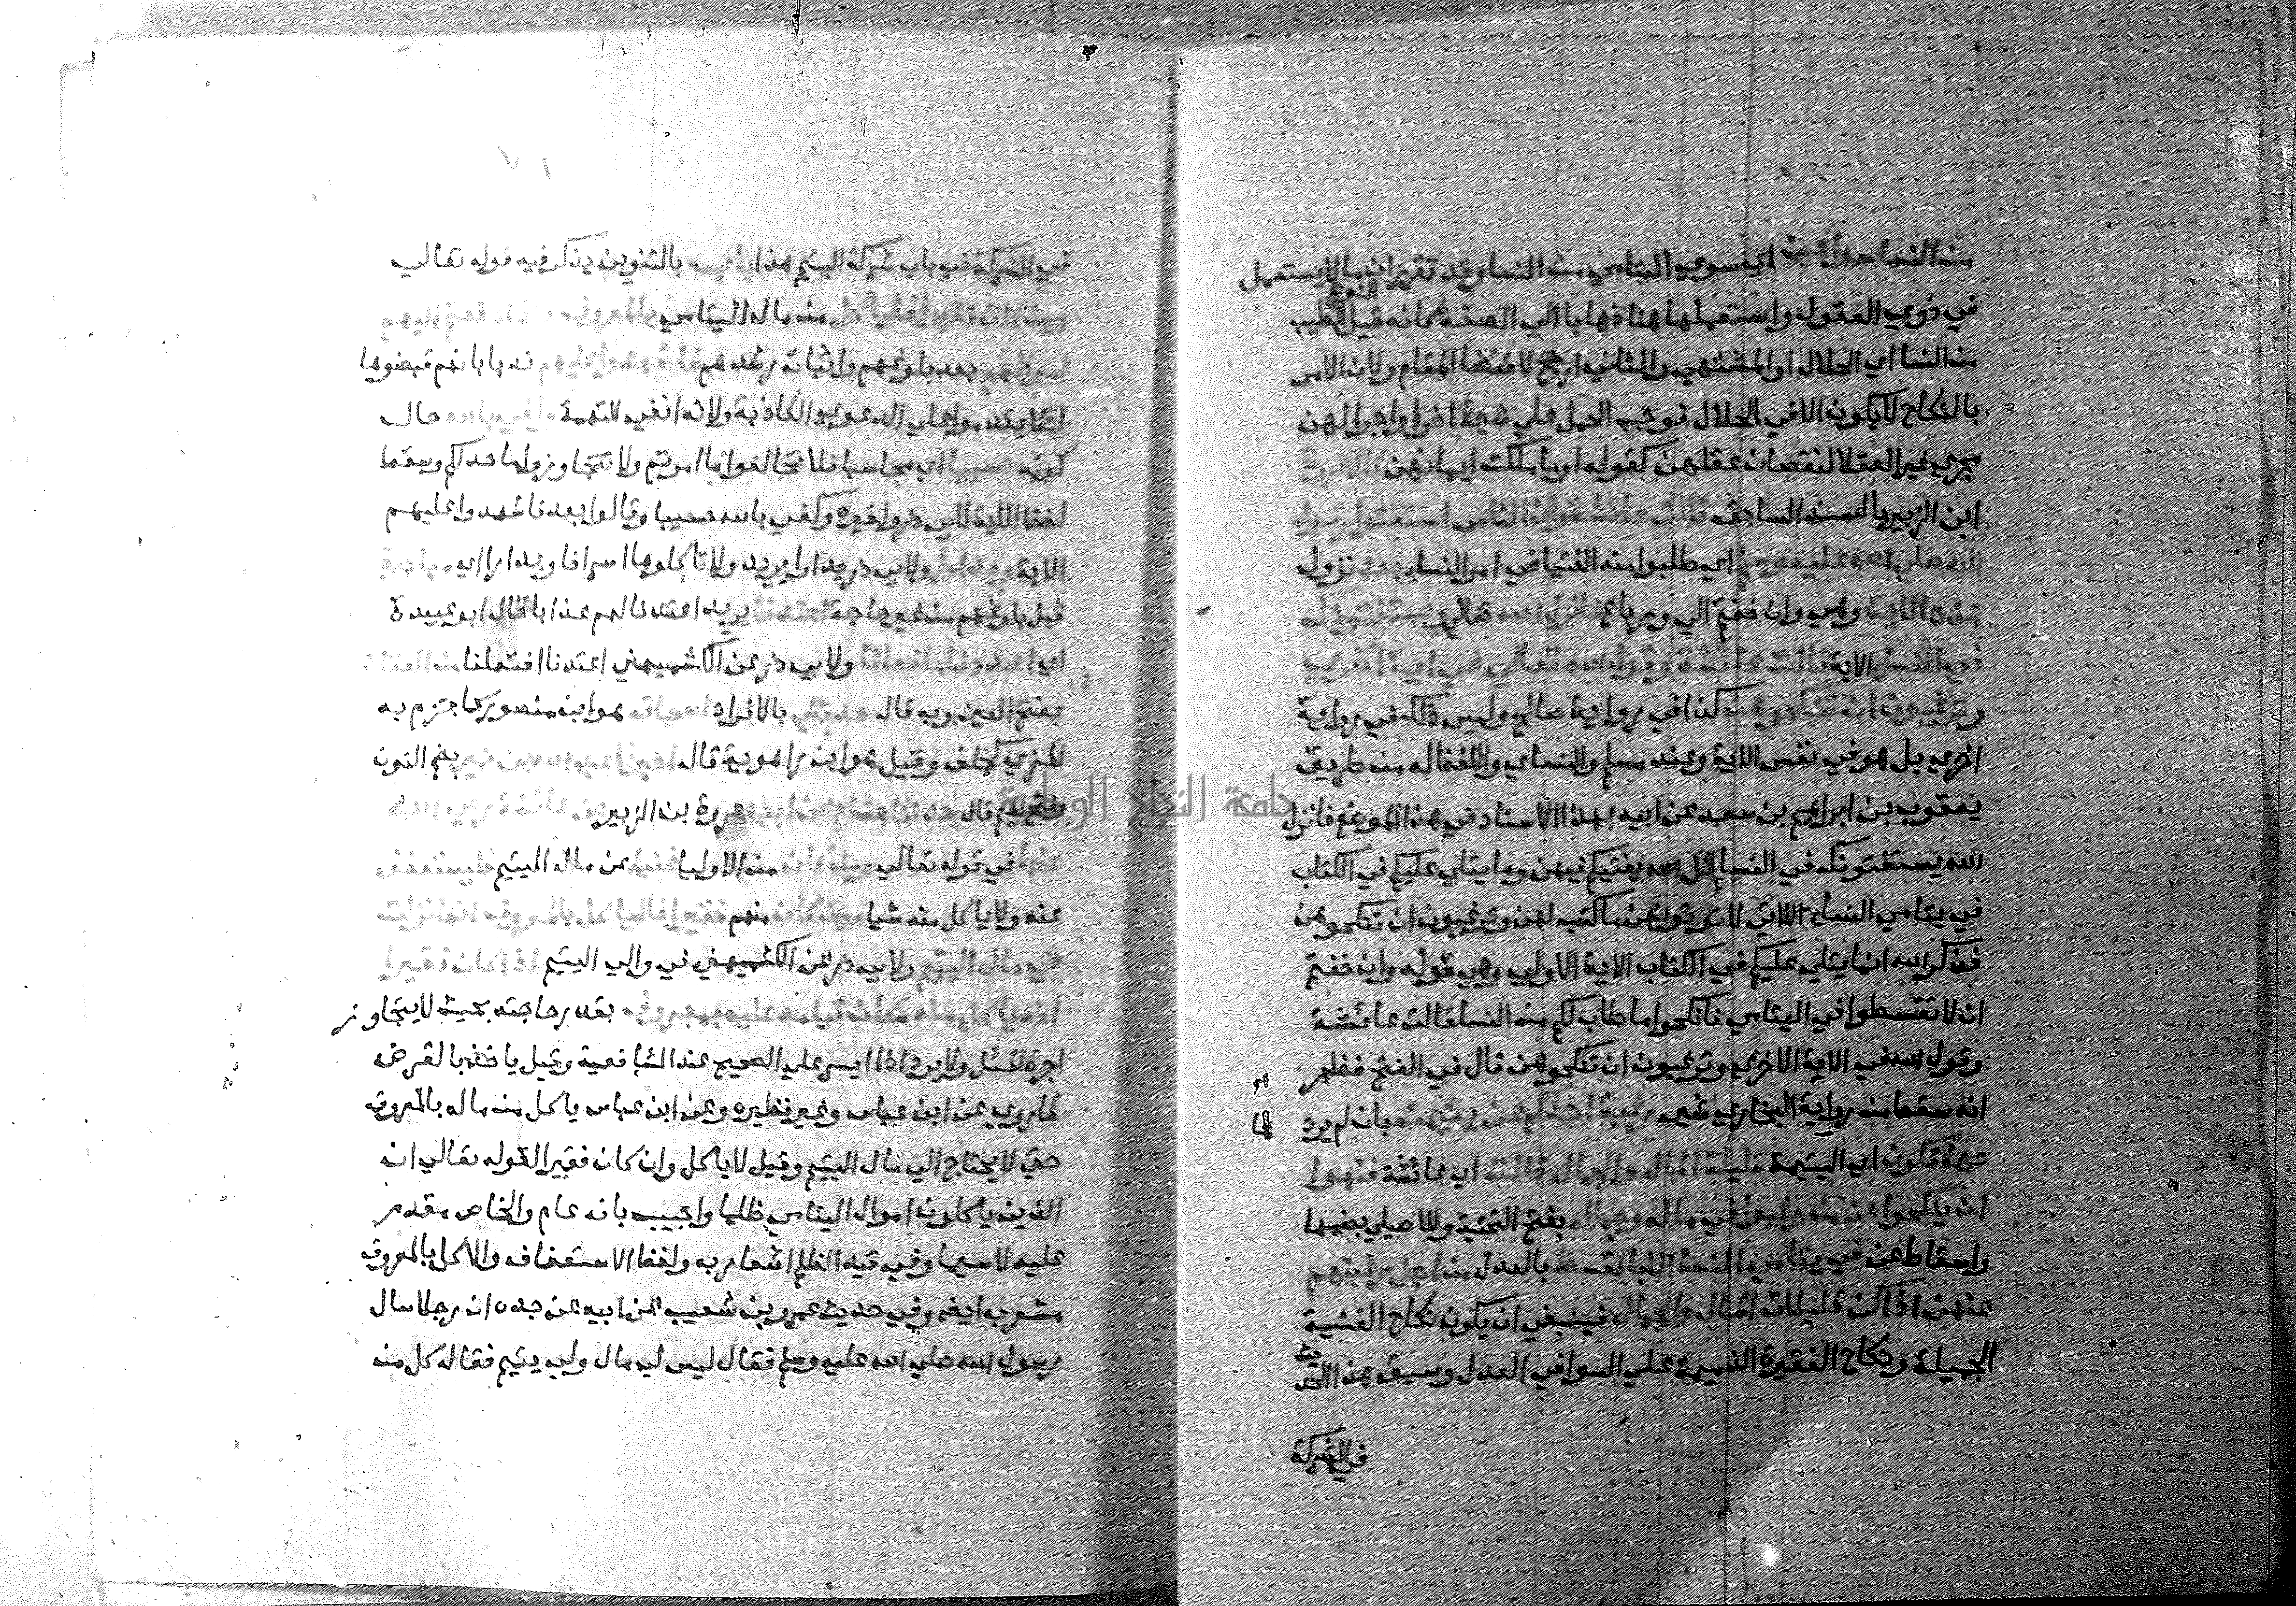 من النسا سواهن اي سوي اليتامي من النسا وقد تقرر ان ما لا يستعمل
في ذوي العقول واستعملها هنا ذهابا الي الصفة كانه قيل النوع الطيب
من النسا اي الحلال او المشتهي والثاني ارجح لاقتضا المقام ولان الامر
بالنكاح لا يكون الا في الحلال فوجب الحمل علي شي اخر او اجرا لهن
مجري غير العقلا لنقصان عقلهن كقوله او ما ملكت ايمانهن قال عروة
ابن الزبير بالسند السابق قالت عائشة وان الناس استفتوا رسول
الله صلي الله عليه وسلم اي طلبوا منه الفتيا في امر النساء بعد نزول
هذه الاية وهي وان خفتم الي ورباع فانزل الله تعالي يستفتونك
في النساء الاية قالت عائشة وقول الله تعالي في اية اخري
وترغبون ان تنكحوهن كذا في رواية صالح وليس ذلك في رواية
اخري بل هو في نفس الاية وعند مسلم والنساي واللفظ له من طريق
يعقوب بن ابراهيم بن سعد عن ابيه بهذا الاسناد في هذا الموضع فانزل
الله يستفتونك في النساء قل الله يفتيكم فيهن وما يتلي عليكم في الكتاب
في يتامي النساء اللاتي لا تؤتونهن ما كتب لهن وترغبون ان تنكحوهن
فذكر الله انما يتلي عليكم في الكتاب الاية الاولي وهي قوله وان خفتم
ان لا تقسطوا في اليتامي فانكحوا ما طاب لكم من النسا قالت عائشة
وقول الله في الاية الاخري وترغبون ان تنكحوهن قال في الفتح فظهر
انه سقط من رواية البخاري شي رغبة احدكم عن يتيمته بان لم يرد
حين تكون اي اليتيمة قليلة المال والجمال قالت اي عائشة فنهوا
ان ينكحوا عن من رغبوا في ماله وجماله بفتح التحتية وللاصيلي بضمها
واسقاط عن في يتامي النساء الا بالقسط بالعدل من اجل رغبتهم
عنهن اذا كن قليلات المال والجمال فينبغي ان يكون نكاح الغنية
الجميلة ونكاح الفقيرة الذميمة علي السوا في العدل وسبق هذا الحديث
في الشركة
في الشركة في باب شركة اليتيم هذا باب بالتنوين يذكر فيه قوله تعالي
ومن كان فقيرا فلياكل من مال اليتامي
اموالهم بعد بلوغهم واثبات رشدهم ندبا بانهم قبضوها
لئلا يقدموا علي الدعوي الكاذبة ولانه انفي للتهمة حال
كونه حسيبا اي محاسبا فلا تخالفوا ما امرتم ولا تتجاوزوا ما حد لكم وسقط
لفظ الاية لابي ذر وغيره وكفي بالله حسيبا وقالوا بعد فاشهدوا عليهم
الاية وبدارا ولابي ذر بدارا يريد ولا تاكلوها اسرافا وبدارا اي
قبل بلوغهم من غير حاجة اعتدنا يريد اعتدنا لهم عذابا قال ابو عبيدة
اي اعددنا افعلنا ولابي ذر عن الكشميهني اعتدنا افتعلنا
بفتح العين وبه قال حدثني بالافراد هو ابن منصور كما جزم به
المزي كخلف وقيل هو ابن راهويه قال بضم النون
وفتح الميم قال حدثنا عروة بن الزبير
في قوله تعالي ومن كان من الاوليا عن مال اليتيم
عنه ولا ياكل منه شيا ومن كان منهم فقيرا
في مال اليتيم ولابي ذر عن الكشميهني في والي اليتيم اذا كان فقيرا
انه ياكل منه مكان قيامه عليه بمعروف بقدر حاجته بحيث لا يتجاوز
اجرة المثل ولا يرد اذا ايسر علي الصحيح عند الشافعية وقيل ياخذ بالقرض
لما روي عن ابن عباس وغير نظيره وعن ابن عباس ياكل من ماله بالمعروف
حتي لا يحتاج الي مال اليتيم وقيل لا ياكل وان كان فقيرا لقوله تعالي ان
الذين ياكلون اموال اليتامي ظلما واجيب بانه عام والخاص مقدم
عليه لا سيما وفي قيد الظلم اشعار به ولفظ الاستعفاف والاكل بالمعروف
مشعر به ايضا وفي حديث عمرو بن شعيب عن ابيه عن جده ان رجلا سال
رسول الله صلي الله عليه وسلم فقال ليس لي مال ولي يتيم فقال كل من
جامعة النجاح الوطنية